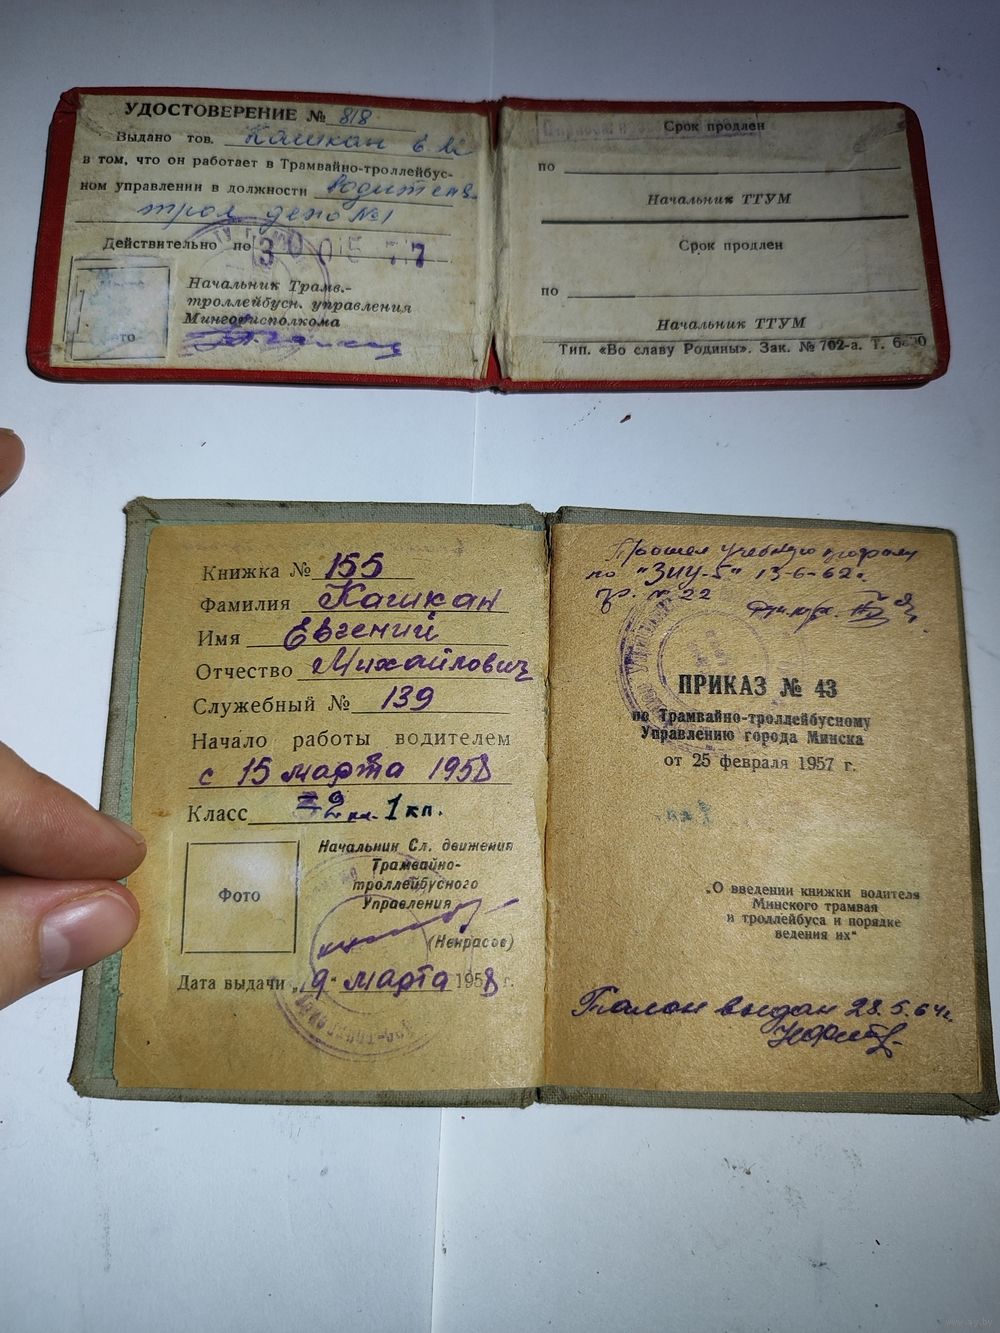 УДОСТОВЕРЕНИЕ № 818
Выдано тов. Кашкан Е. М.
в том, что он работает в Трамвайно-троллейбус-
ном управлении в должности водителя
трол депо №1
Действительно по 30 05 77
Начальник Трамв.-
троллейбусн. управления
Мингорисполкома
Фото
Срок продлен
по
Начальник ТТУМ
Срок продлен
по
Начальник ТТУМ
Тип. «Во славу Родины». Зак. № 702-а. Т.
Книжка № 155
Фамилия Кашкан
Имя Евгений
Отчество Михайлович
Служебный № 139
Начало работы водителем
с 15 марта 1958
Класс 2 кл. 1 кл.
Фото
Начальник Сл. движения
Трамвайно-
троллейбусного
Управления
(Некрасов)
Дата выдачи „19" марта 1958 г.
Прошел учебную программу
по "ЗИУ-5" 13-6-62г.
гр. № 22
ПРИКАЗ № 43
по Трамвайно-троллейбусному
Управлению города Минска
от 25 февраля 1957 г.
„О введении книжки водителя
Минского трамвая
и троллейбуса и порядке
ведения их"
Талон выдан 28.5.64г.